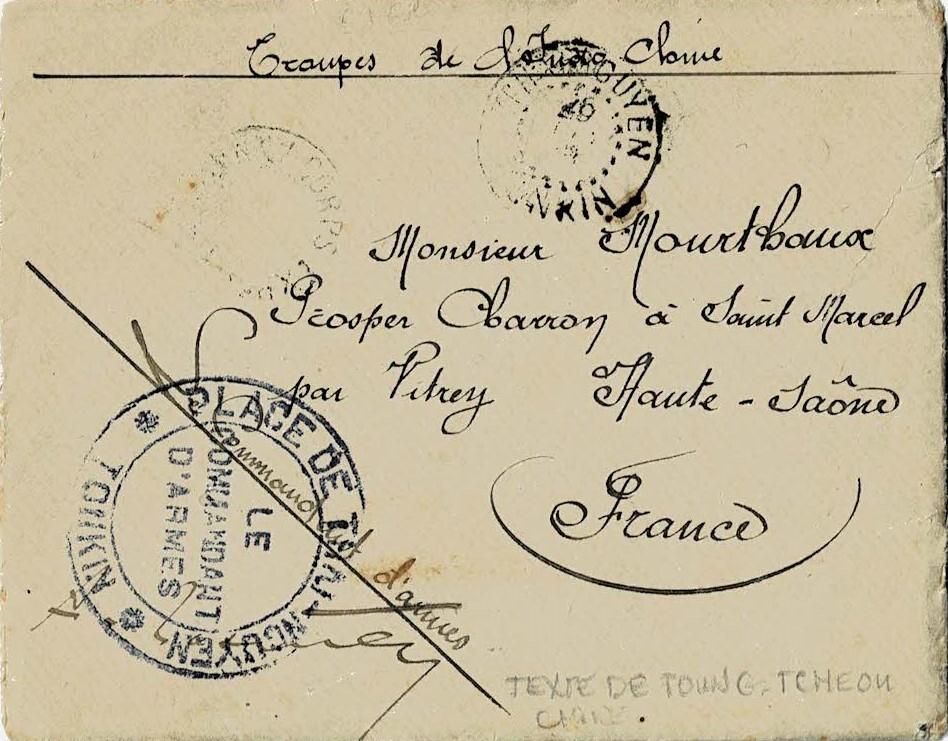 Troupes de l'Indo Chine
THAI-NGUYEN
TONKIN
CORPS
Monsieur Mourthaux
Prosper Charron à Saint Marcel
par Vitrey Haute-Saône
France
PLACE DE THAI-NGUYEN
* TONKIN *
LE
COMMANDANT
D'ARMES
Le Commandant d'armes
TEXTE DE TOUNG-TCHEOU
CHINE.